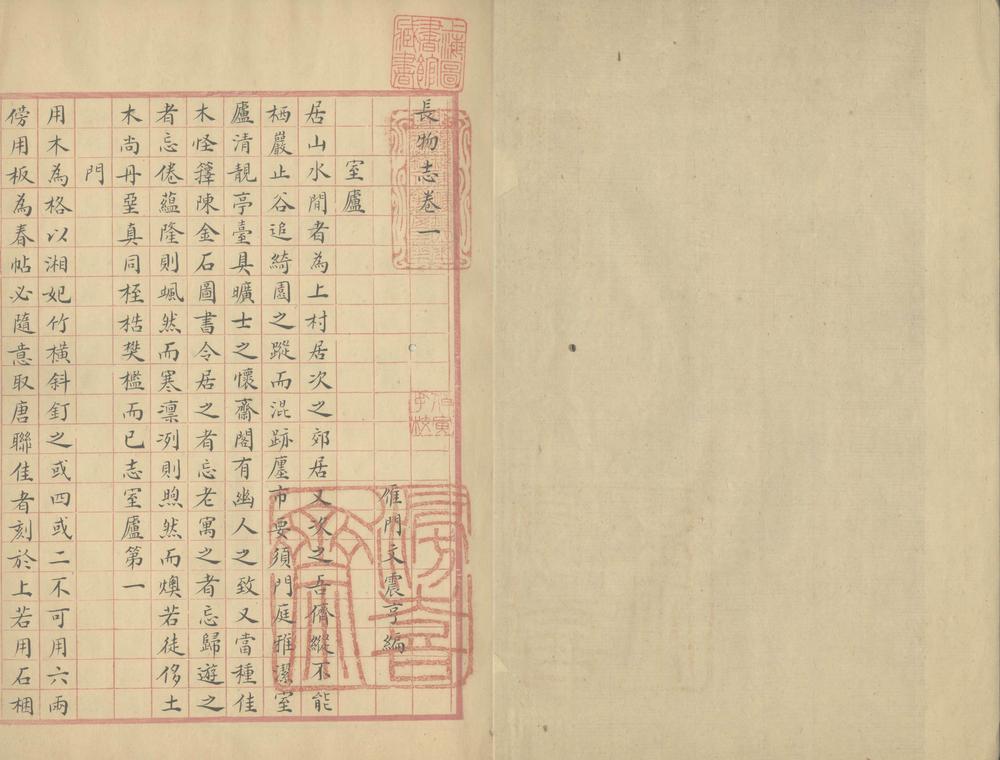 上海圖書館藏書
長物志卷一
雁門文震亨編
室廬
居山水間者為上村居次之郊居又次之吾儕縱不能
栖巖止谷追綺園之蹤而混跡廛市要須門庭雅潔室
廬清靚亭臺具曠士之懷齋閣有幽人之致又當種佳
木怪籜陳金石圖書令居之者忘老寓之者忘歸遊之
者忘倦蘊隆則颯然而寒凜冽則煦然而燠若徒侈土
木尚丹堊真同桎梏樊檻而已志室廬第一
門
用木為格以湘妃竹橫斜釘之或四或二不可用六兩
傍用板為春帖必隨意取唐聯佳者刻於上若用石梱